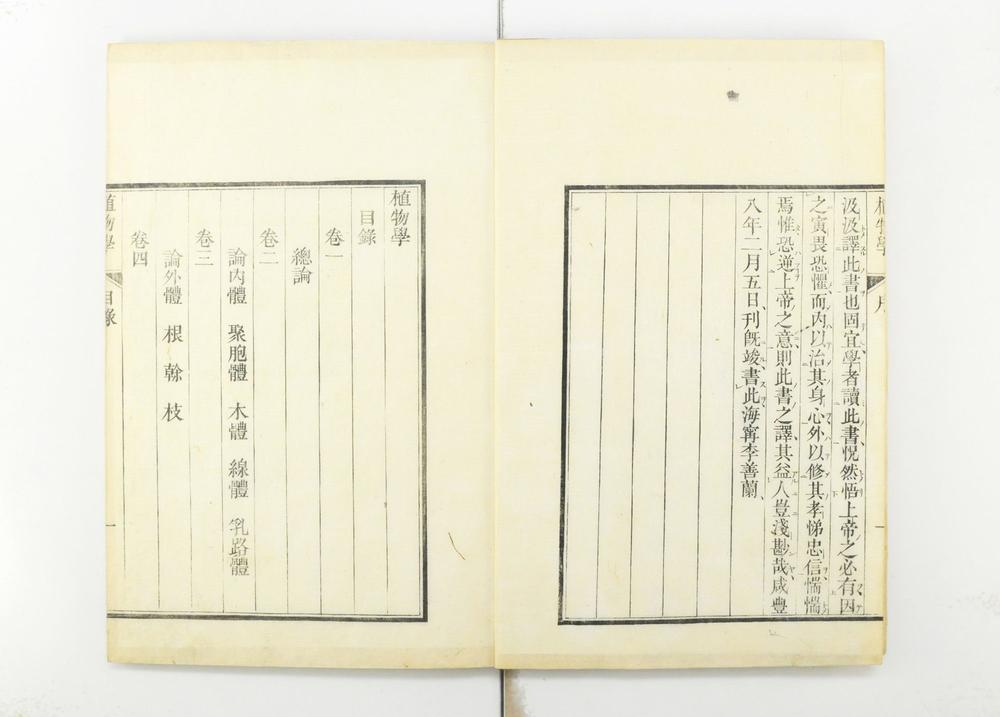 植物學
序
一
汲汲譯此書也固宜學者讀此書恍然悟上帝之必有因
之寅畏恐懼而內以治其身心外以修其孝悌忠信惴惴
焉惟恐逆上帝之意則此書之譯其益人豈淺尠哉咸豐
八年二月五日刊既竣書此海寧李善蘭
植物學
目錄
卷一
總論
卷二
論內體 聚胞體 木體 線體 乳路體
卷三
論外體 根 榦 枝
卷四
植物學
目錄
一